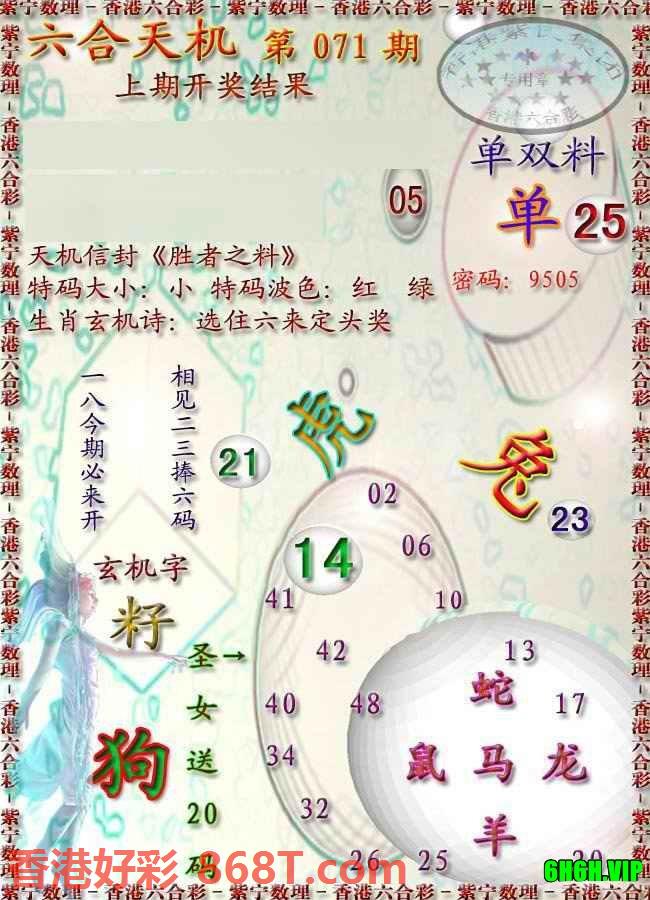 紫宁数理－香港六合彩－紫宁数理－香港六合彩－紫宁数理－香港六合彩－紫宁数理－香港六合彩
六合天机 第071期
上期开奖结果
专用章
香港六合彩
单双料
单 25
05
天机信封《胜者之料》
特码大小：小 特码波色：红 绿
密码：9505
生肖玄机诗：选住六来定头奖
相见二三捧六码
一八今期必来开
21
虎
兔
23
02
14
06
41
10
玄机字
籽
圣女送20码
→
42
13
蛇
40
48
17
狗
34
鼠 马 龙
32
羊
26
25
香港好彩 868T.com
6H6H.VIP
紫宁数理－香港六合彩－紫宁数理－香港六合彩－紫宁数理－香港六合彩－紫宁数理－香港六合彩